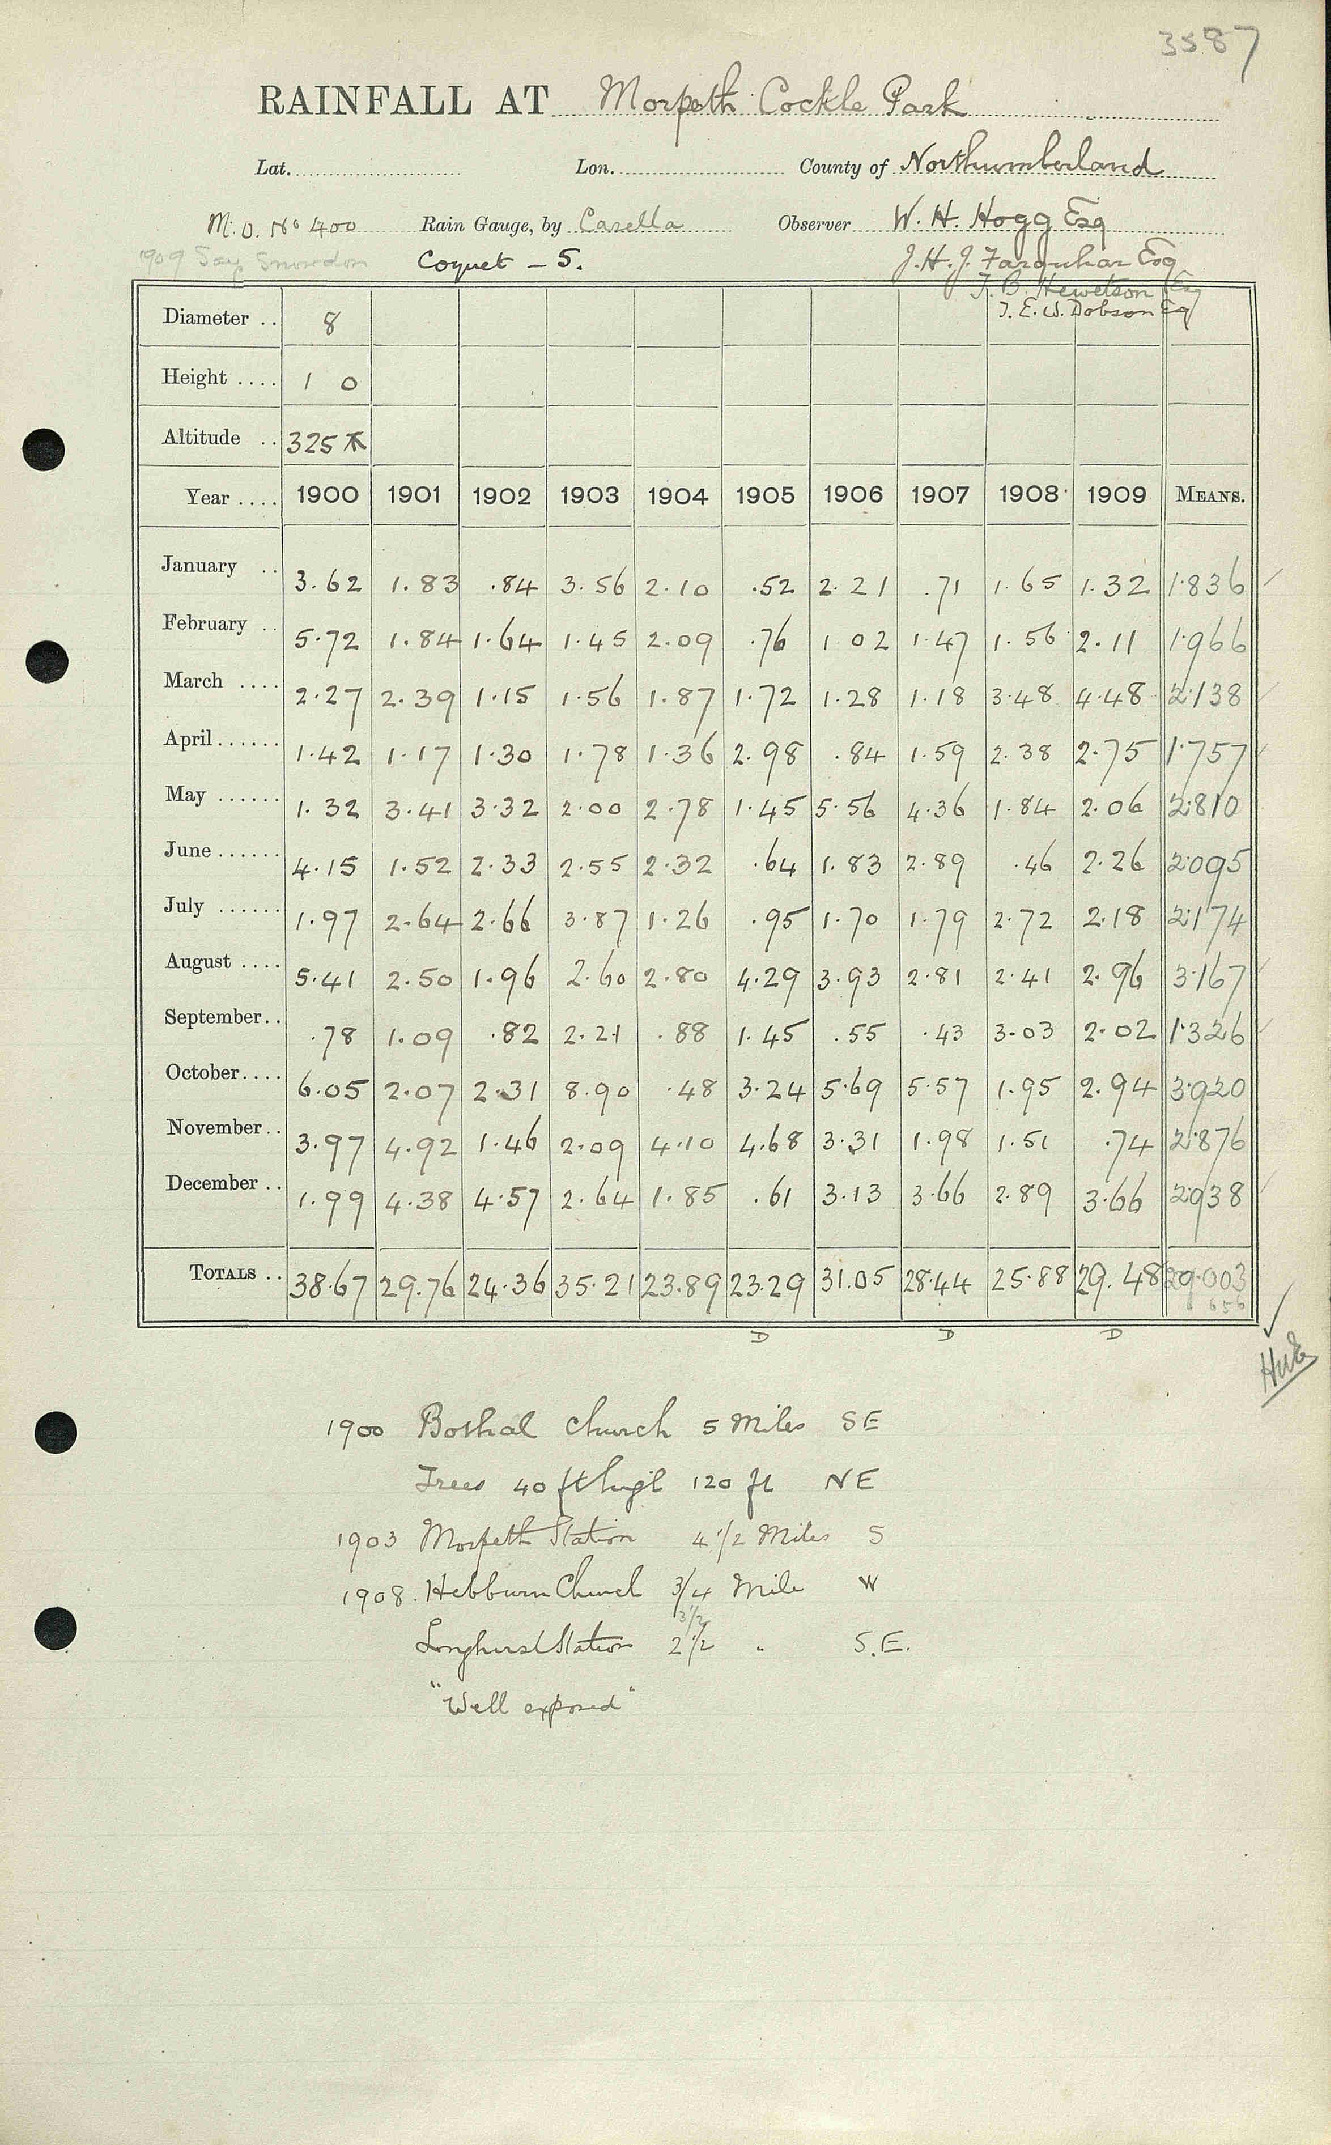 3587
RAINFALL AT Morpeth Cockle Park
Lat. Lon. County of Northumberland
M.O. No 400 Rain Gauge, by Casella Observer W. H. Hogg Esq
1909 Say Snowdon Coquet – 5. J. H. J. Farquhar Esq
J. B. Hewetson Esq
T. E. W. Dobson Esq
Diameter .. 8
Height .... 1 0
Altitude .. 325
Year .... 1900 1901 1902 1903 1904 1905 1906 1907 1908 1909 MEANS.
January .. 3.62 1.83 .84 3.56 2.10 .52 2.21 .71 1.65 1.32 1.836
February .. 5.72 1.84 1.64 1.45 2.09 .76 1.02 1.47 1.56 2.11 1.966
March .... 2.27 2.39 1.15 1.56 1.87 1.72 1.28 1.18 3.48 4.48 2.138
April...... 1.42 1.17 1.30 1.78 1.36 2.98 .84 1.59 2.38 2.75 1.757
May ...... 1.32 3.41 3.32 2.00 2.78 1.45 5.56 4.36 1.84 2.06 2.810
June...... 4.15 1.52 2.33 2.55 2.32 .64 1.83 2.89 .46 2.26 2.095
July ...... 1.97 2.64 2.66 3.87 1.26 .95 1.70 1.79 2.72 2.18 2.174
August .... 5.41 2.50 1.96 2.60 2.80 4.29 3.93 2.81 2.41 2.96 3.167
September.. .78 1.09 .82 2.21 .88 1.45 .55 .43 3.03 2.02 1.326
October.... 6.05 2.07 2.31 8.90 .48 3.24 5.69 5.57 1.95 2.94 3.920
November.. 3.97 4.92 1.46 2.09 4.10 4.68 3.31 1.98 1.51 .74 2.876
December .. 1.99 4.38 4.57 2.64 1.85 .61 3.13 3.66 2.89 3.66 2.938
TOTALS .. 38.67 29.76 24.36 35.21 23.89 23.29 31.05 28.44 25.88 29.48 29.003
656
D D D
1900 Bothal Church 5 Miles SE
Trees 40 ft high 120 ft NE
1903 Morpeth Station 4 1/2 Miles S
1908. Hebburn Church 3/4 Mile W
3 1/2
Longhirst Station 2 1/2 " S.E.
"Well exposed"